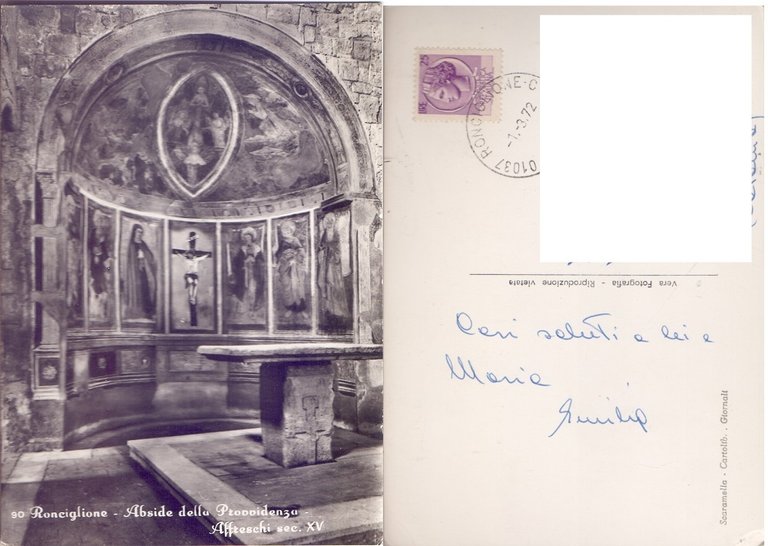 90 Ronciglione - Abside della Provvidenza -
Affreschi sec. XV
01037 RONCIGLIONE-C
-1.-3.72
Vera Fotografia - Riproduzione vietata
Cari saluti a lei e
Maria
Emilio
Scaramella - Cartolib. - Giornali